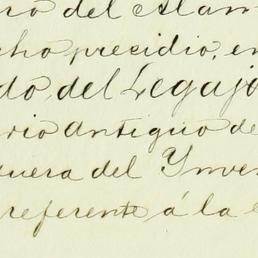 del Alam
cho presidio, en
do, del Legajo
rio Antiguo de
quera del Ynve
referente á la